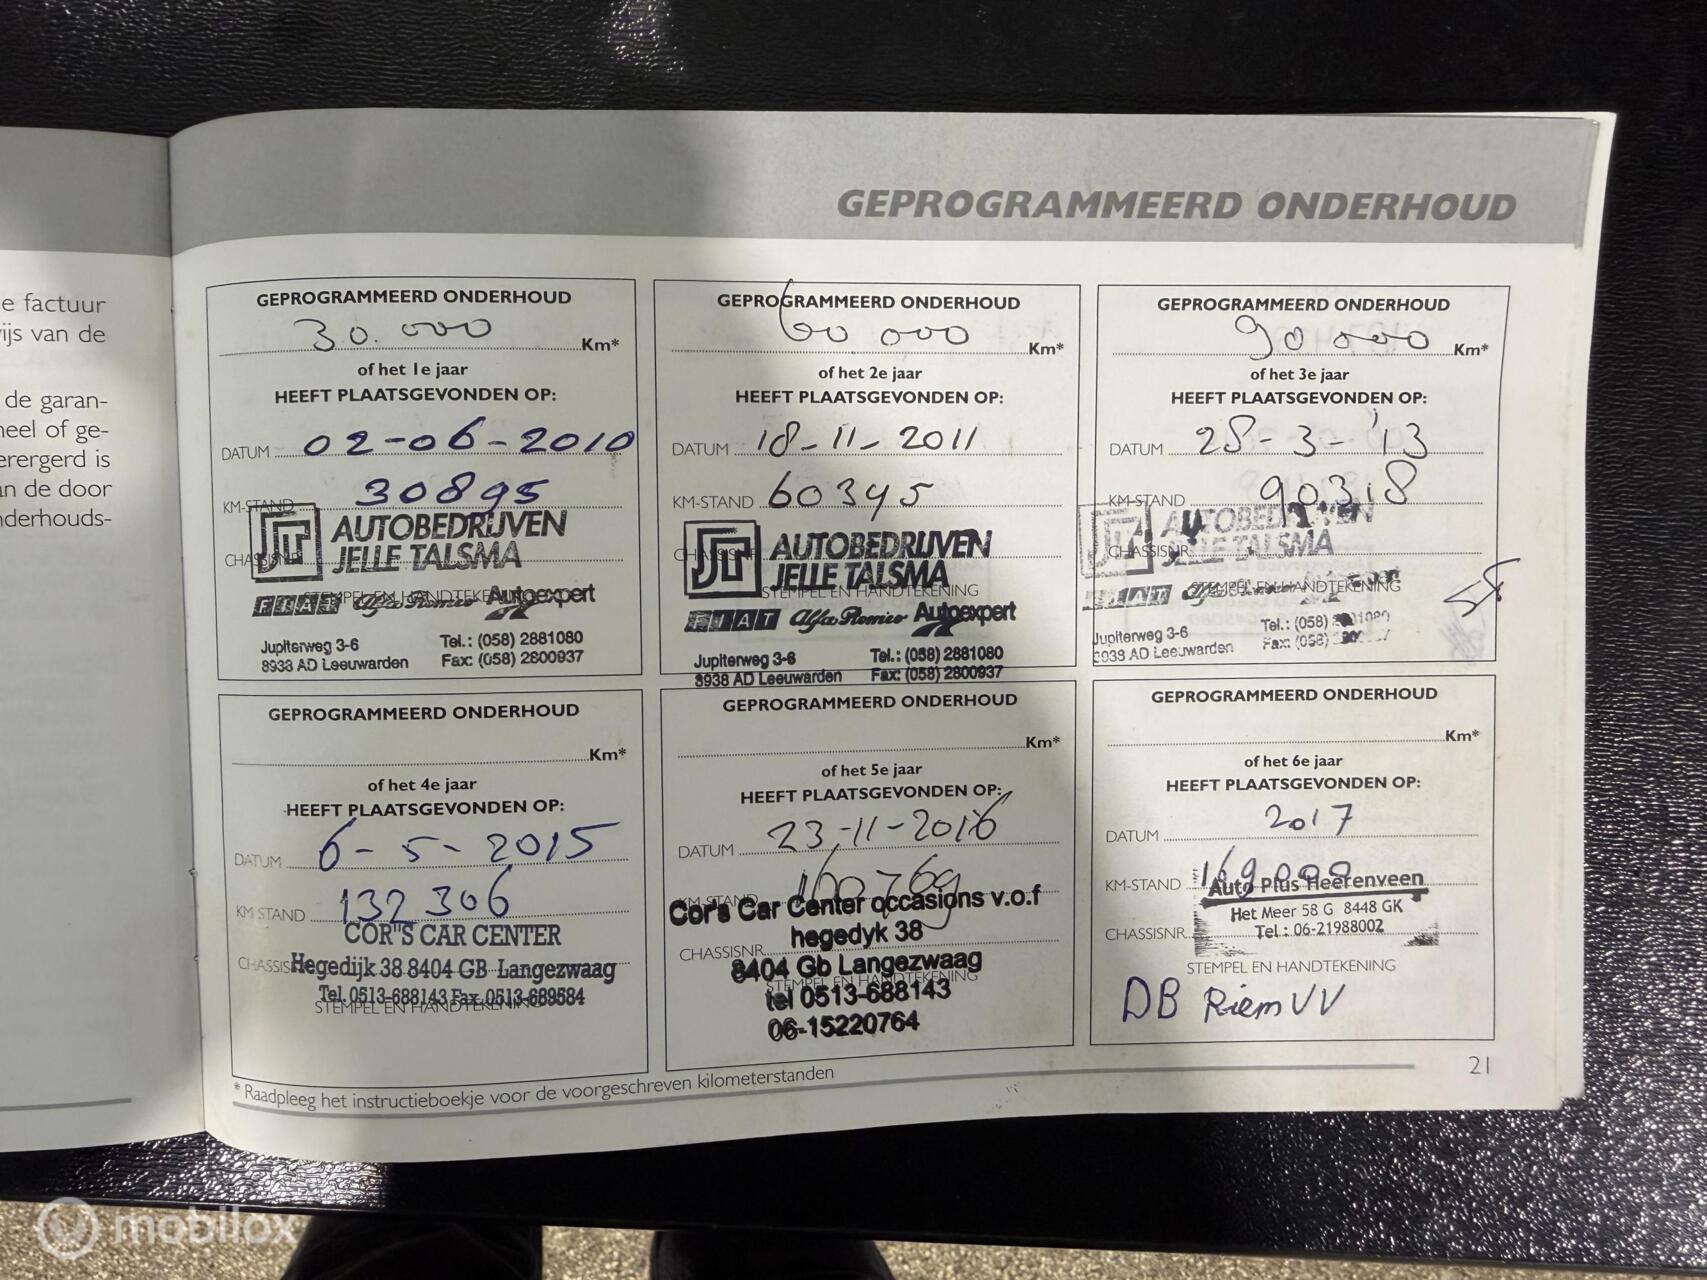 e factuur
ijs van de
de garan-
heel of ge-
erergerd is
an de door
nderhouds-
GEPROGRAMMEERD ONDERHOUD
GEPROGRAMMEERD ONDERHOUD
30.000 Km*
of het 1e jaar
HEEFT PLAATSGEVONDEN OP:
DATUM 02-06-2010
KM-STAND 30895
CHASSISNR.
AUTOBEDRIJVEN
JELLE TALSMA
STEMPEL EN HANDTEKENING
FIAT Alfa Romeo Autoexpert
Jupiterweg 3-6 Tel.: (058) 2881080
8938 AD Leeuwarden Fax: (058) 2800937
GEPROGRAMMEERD ONDERHOUD
60 000 Km*
of het 2e jaar
HEEFT PLAATSGEVONDEN OP:
DATUM 18-11-2011
KM-STAND 60395
CHASSISNR.
AUTOBEDRIJVEN
JELLE TALSMA
STEMPEL EN HANDTEKENING
FIAT Alfa Romeo Autoexpert
Jupiterweg 3-6 Tel.: (058) 2881080
8938 AD Leeuwarden Fax: (058) 2800937
GEPROGRAMMEERD ONDERHOUD
90 000 Km*
of het 3e jaar
HEEFT PLAATSGEVONDEN OP:
DATUM 28-3-'13
KM-STAND 90318
CHASSISNR.
AUTOBEDRIJVEN
JELLE TALSMA
STEMPEL EN HANDTEKENING
FIAT
Jupiterweg 3-6 Tel.: (058)
8938 AD Leeuwarden Fax: (058)
GEPROGRAMMEERD ONDERHOUD
Km*
of het 4e jaar
HEEFT PLAATSGEVONDEN OP:
DATUM 6-5-2015
KM STAND 132 306
COR"S CAR CENTER
CHASSISNR.
Hegedijk 38 8404 GB Langezwaag
Tel. 0513-688143 Fax. 0513-689584
STEMPEL EN HANDTEKENING
GEPROGRAMMEERD ONDERHOUD
Km*
of het 5e jaar
HEEFT PLAATSGEVONDEN OP:
DATUM 23-11-2016
KM-STAND 160769
Cor's Car Center occasions v.o.f
hegedyk 38
CHASSISNR.
8404 Gb Langezwaag
STEMPEL EN HANDTEKENING
tel 0513-688143
06-15220764
GEPROGRAMMEERD ONDERHOUD
Km*
of het 6e jaar
HEEFT PLAATSGEVONDEN OP:
DATUM 2017
KM-STAND 169000
Auto Plus Heerenveen
Het Meer 58 G 8448 GK
CHASSISNR.
Tel : 06-21988002
STEMPEL EN HANDTEKENING
DB Riem VV
* Raadpleeg het instructieboekje voor de voorgeschreven kilometerstanden
21
mobilox